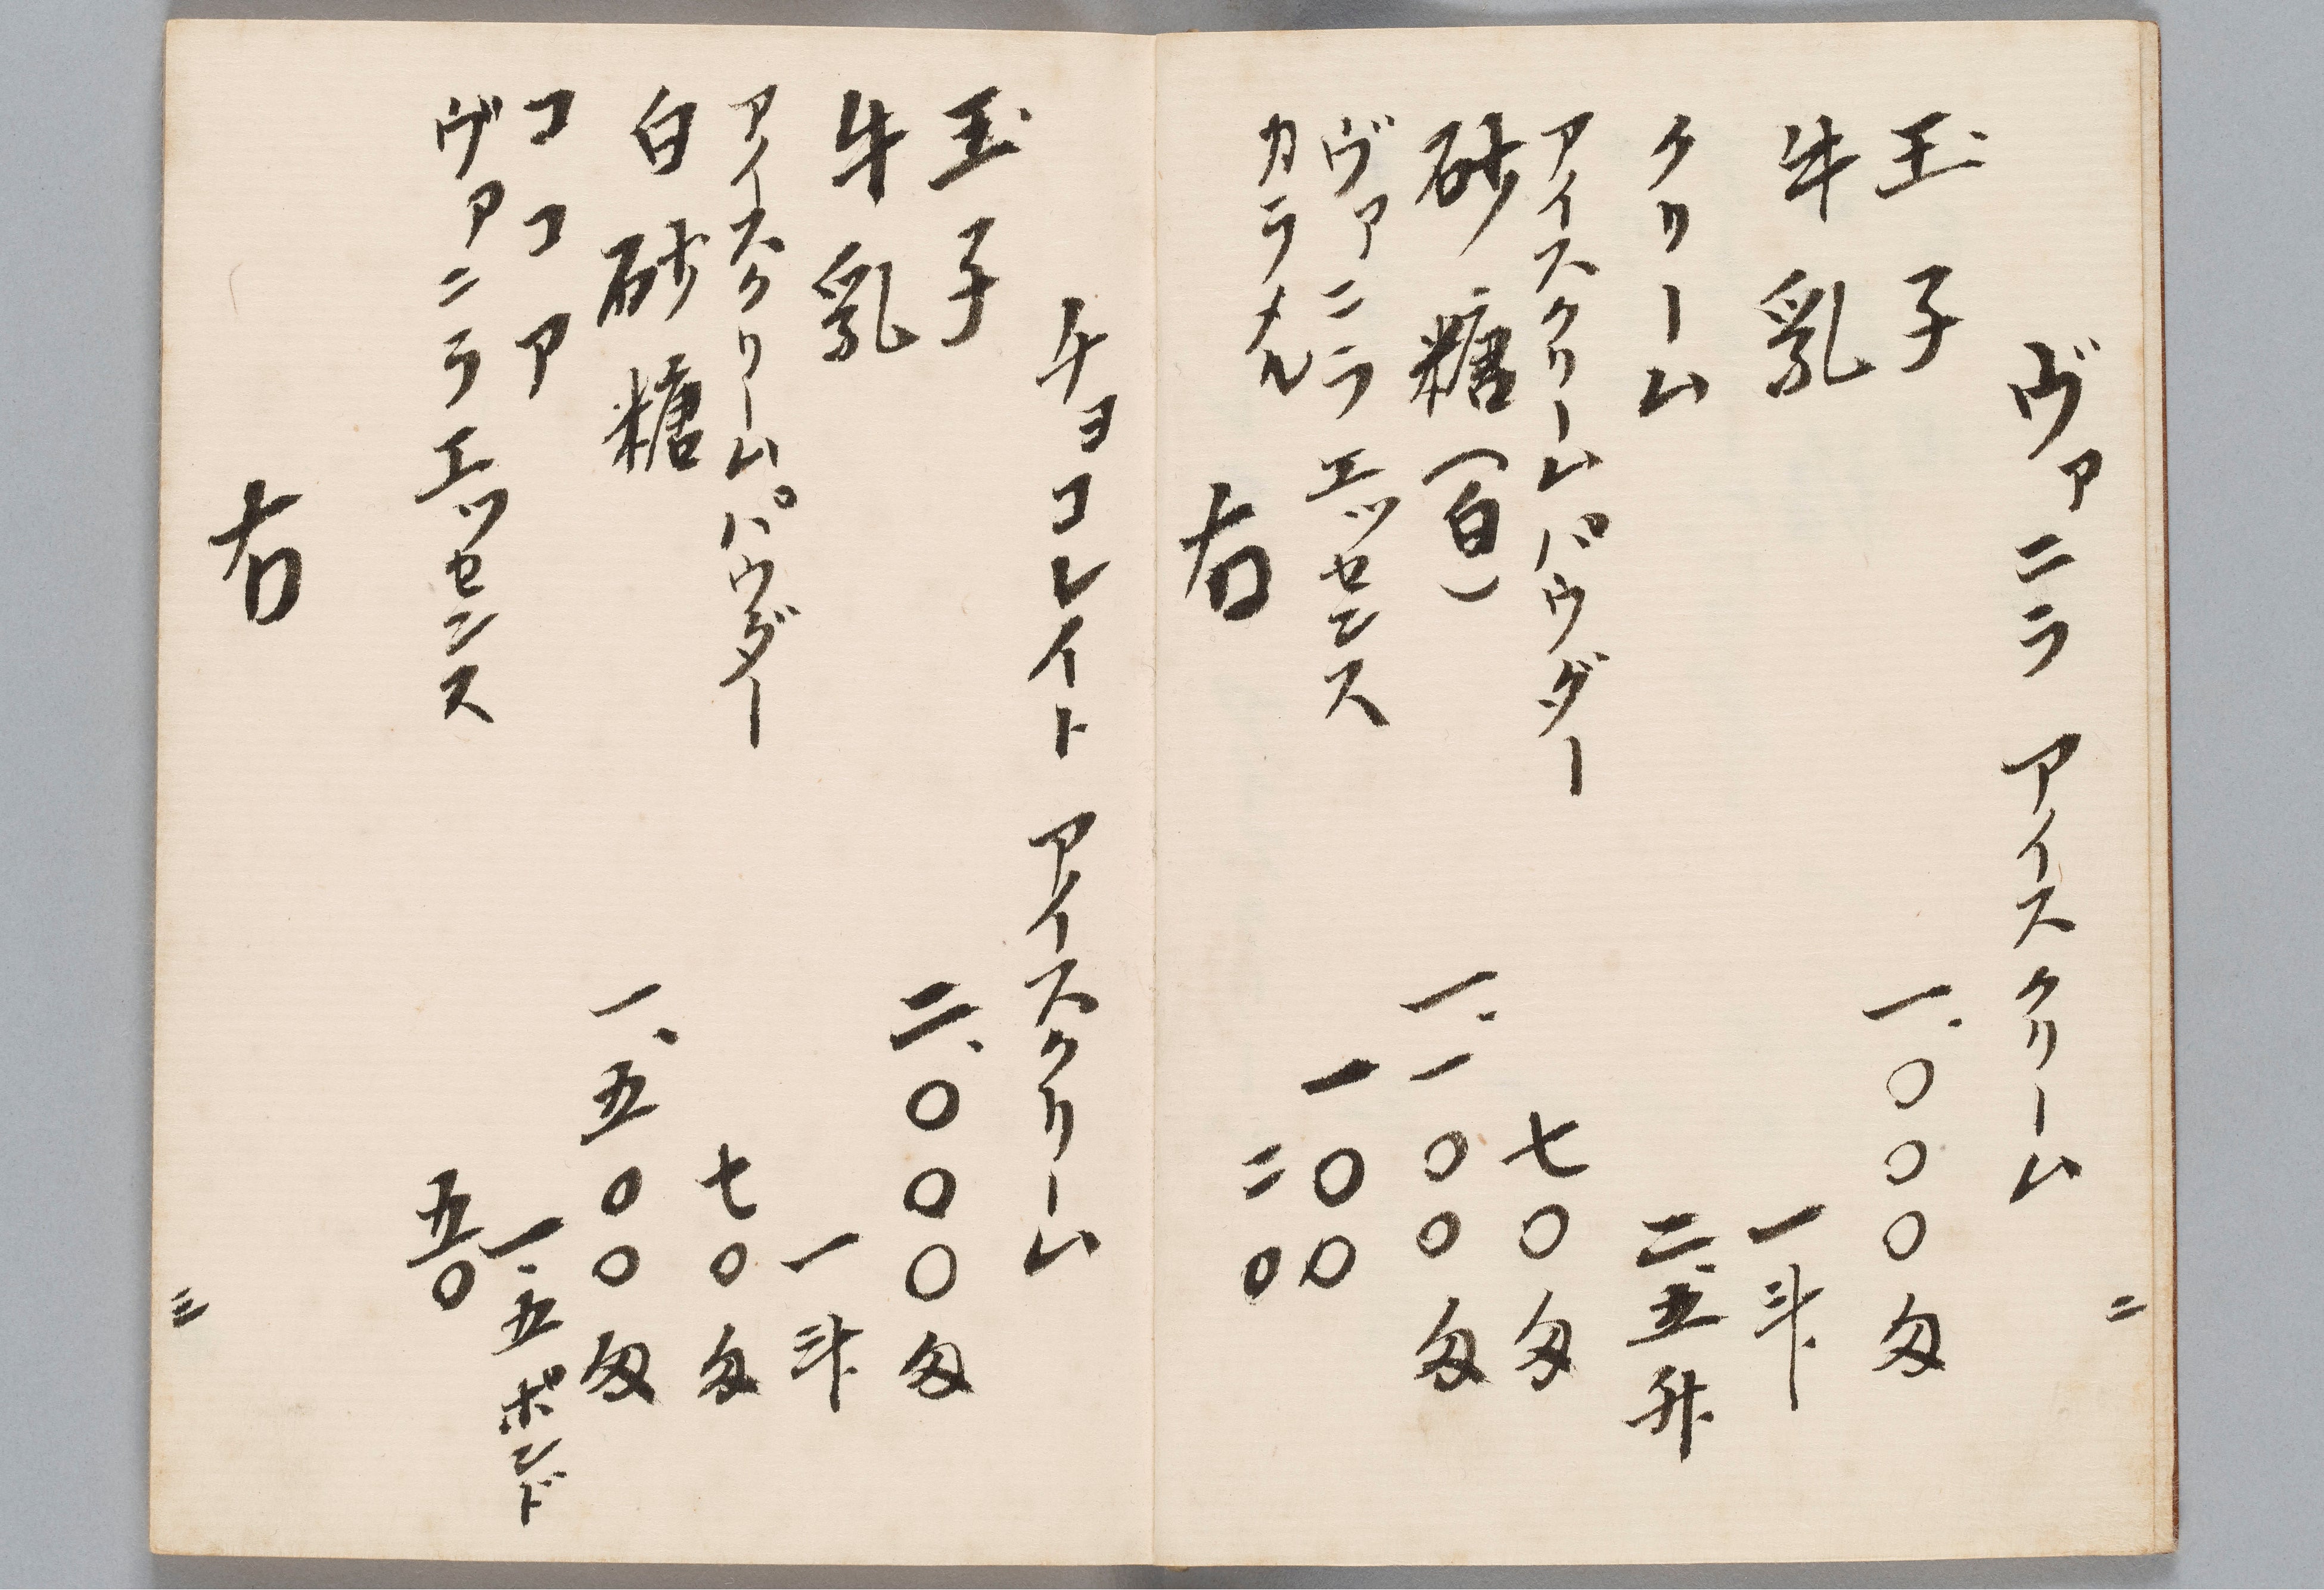 ヴァニラ アイスクリーム
玉子 一、〇〇〇匁
牛乳 一斗
クリーム 二、五升
アイスクリームパウダー 七〇匁
砂糖(白) 一、一〇〇匁
ヴァニラエッセンス 一〇〇
カラメル 二〇
右
二
チョコレイト アイスクリーム
玉子 二、〇〇〇匁
牛乳 一斗
アイスクリームパウダー 七〇匁
白砂糖 一、五〇〇匁
ココア 一、五ポンド
ヴァニラエッセンス 五〇
右
三